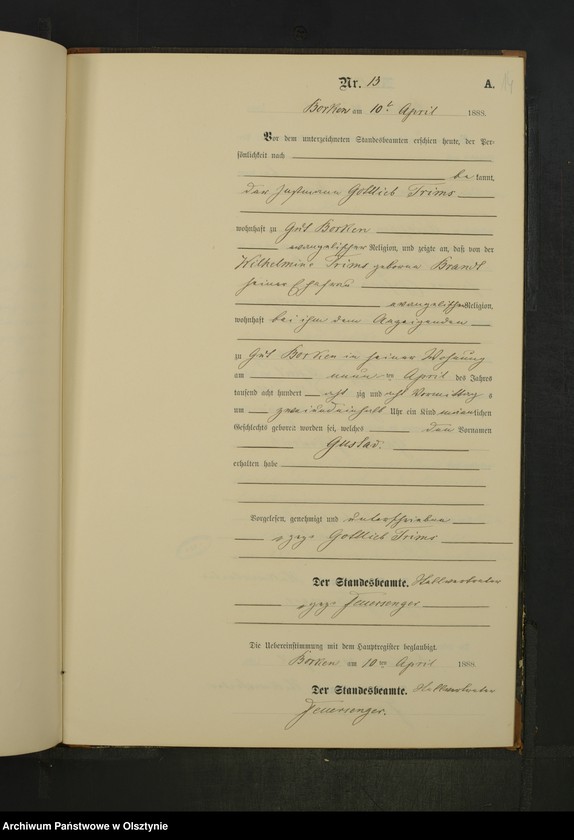 Nr. 13
A.
Borken am 10t April 1888.
Vor dem unterzeichneten Standesbeamten erschien heute, der Per-
sönlichkeit nach
be kannt,
der Instmann Gottlieb Trims
wohnhaft zu Gut Borken
evangelischer Religion, und zeigte an, daß von der
Wilhelmine Trims geborene Brandt
seiner Ehefrau
evangelischer Religion,
wohnhaft bei ihm dem Anzeigenden
zu Gut Borken in seiner Wohnung
am neunten April des Jahres
tausend acht hundert acht zig und acht Vormittag s
um zweieinhalb Uhr ein Kind männlichen
Geschlechts geboren worden sei, welches den Vornamen
Gustav.
erhalten habe
Vorgelesen, genehmigt und unterschrieben
gez. Gottlieb Trims
Der Standesbeamte. Stellvertreter
gez.
Die Uebereinstimmung mit dem Hauptregister beglaubigt.
Borken am 10ten April 1888.
Der Standesbeamte. Stellvertreter
Archiwum Państwowe w Olsztynie